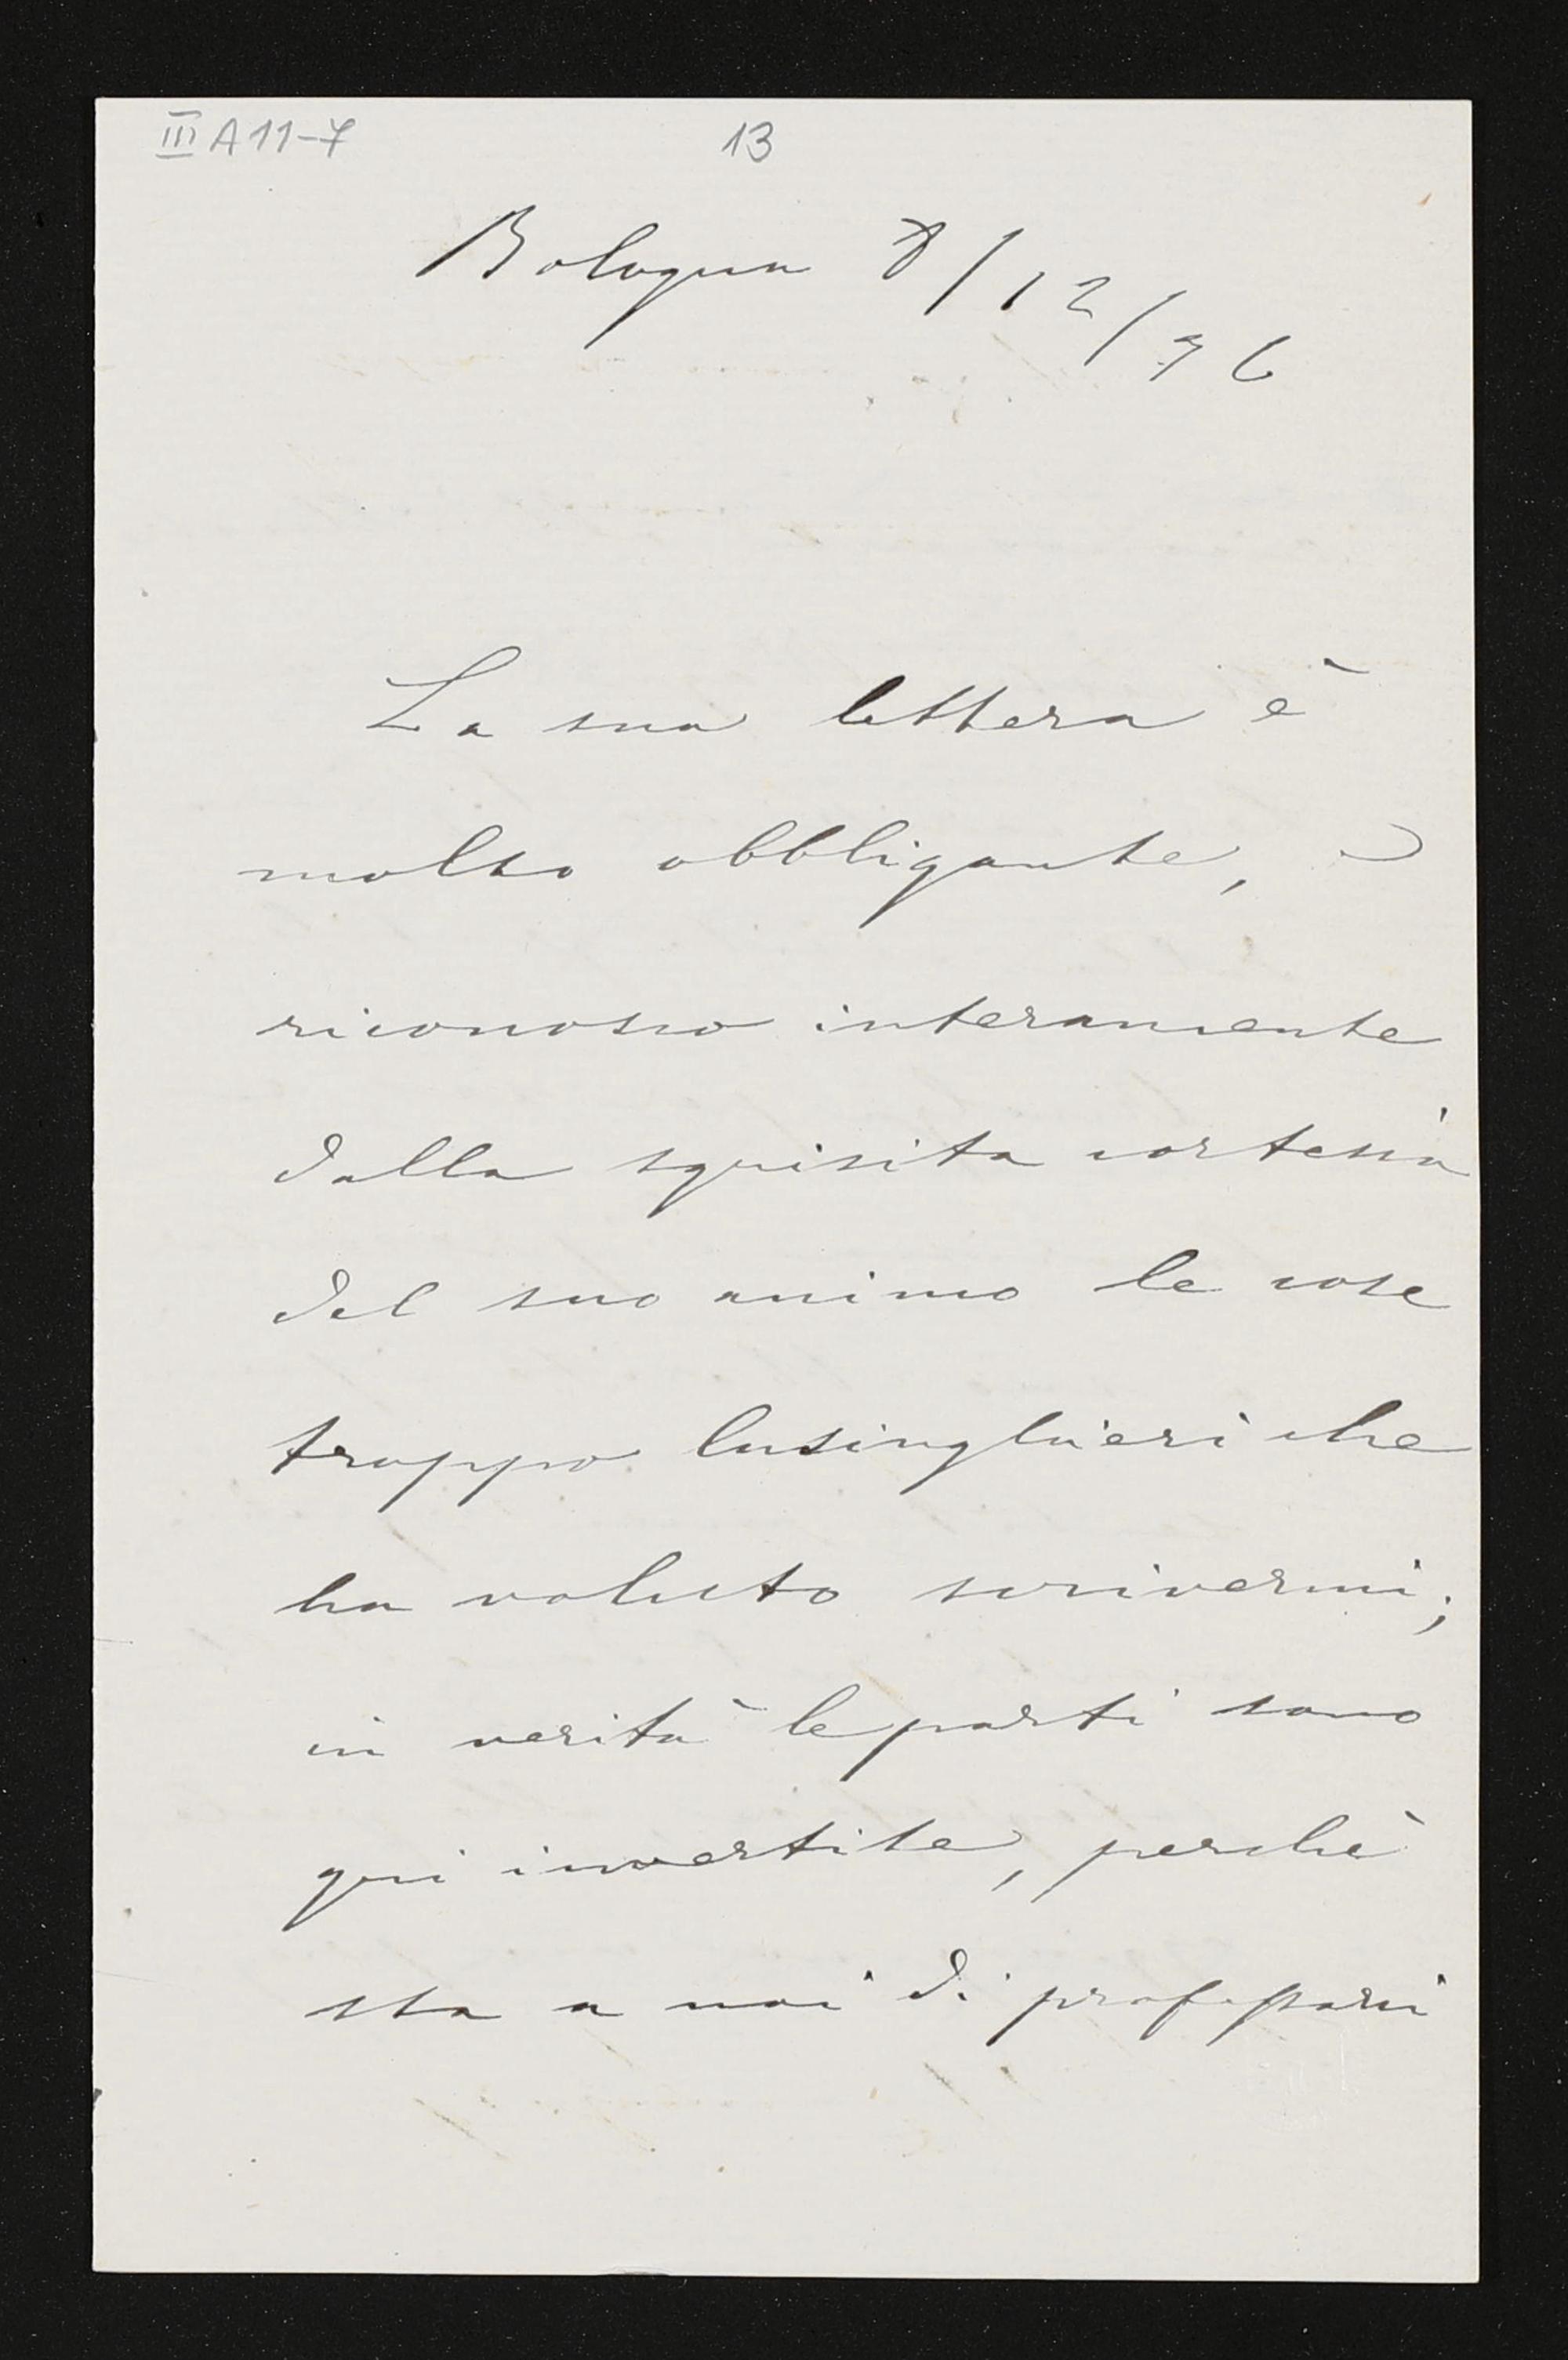 III A 11-7
13
Bologna 8/12/76
La sua lettera è
molto obbligante, e
riconosco interamente
dalla squisita cortesia
del suo animo le cose
troppo lusinghieri che
ha voluto scrivermi;
in verità le parti sono
qui invertite, perchè
sta a noi di professarci